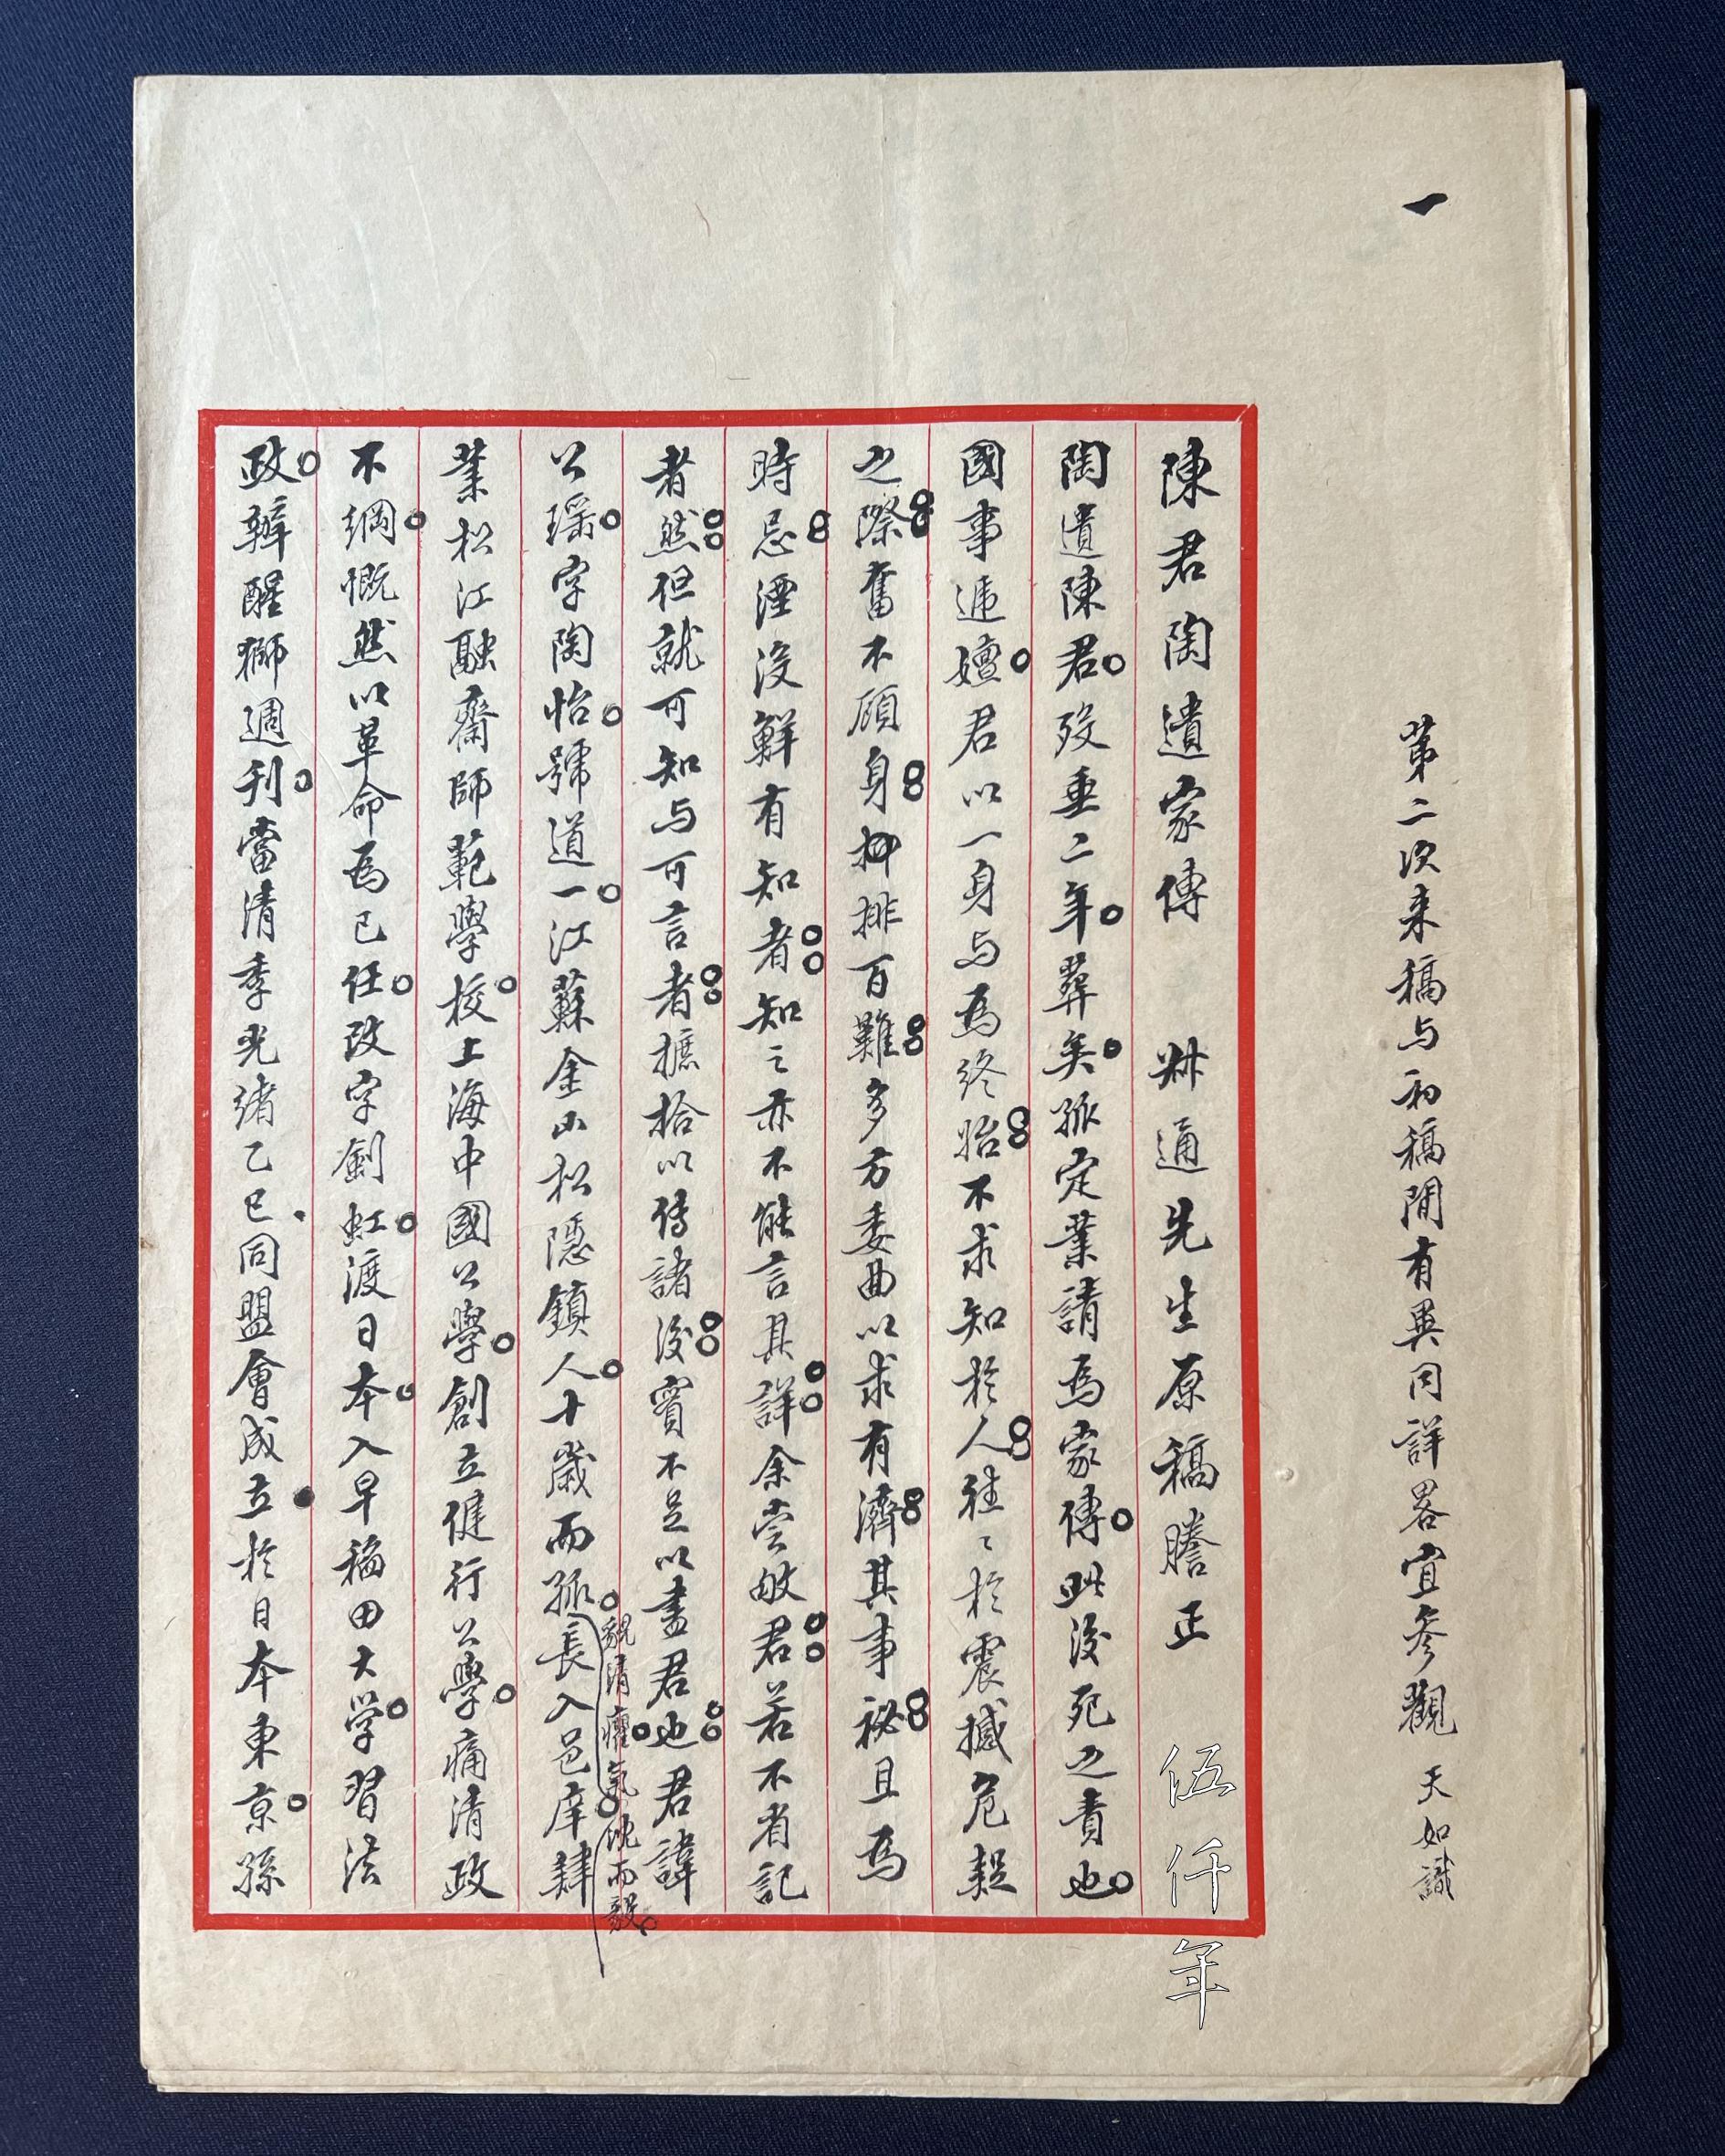 一
第二次来稿与初稿間有異同詳畧宜参觀 天如識
陳君陶遺家傳 叔通先生原稿謄正
陶遺陳君歿垂二年葬矣孤定業請為家傳此後死之責也
國事遞嬗君以一身与為終始不求知於人往〻於震撼危疑
之際奮不顧身抑排百難多方委曲以求有濟其事祕且為
時忌湮沒鮮有知者知之亦不能言其詳余嘗敂君君若不省記
者然但就可知与可言者摭拾以傳諸後實不足以盡君也君諱
公瑶字陶怡號道一江蘇金山松隱鎮人十歲而孤長入邑庠肄
貌清癯氣沈而毅
業松江融齋師範學校上海中國公學創立健行公學痛清政
不綱慨然以革命爲己任改字劍虹渡日本入早稲田大学習法
政辦醒獅週刊當清季光緒乙巳同盟會成立於日本東京孫
伍仟年